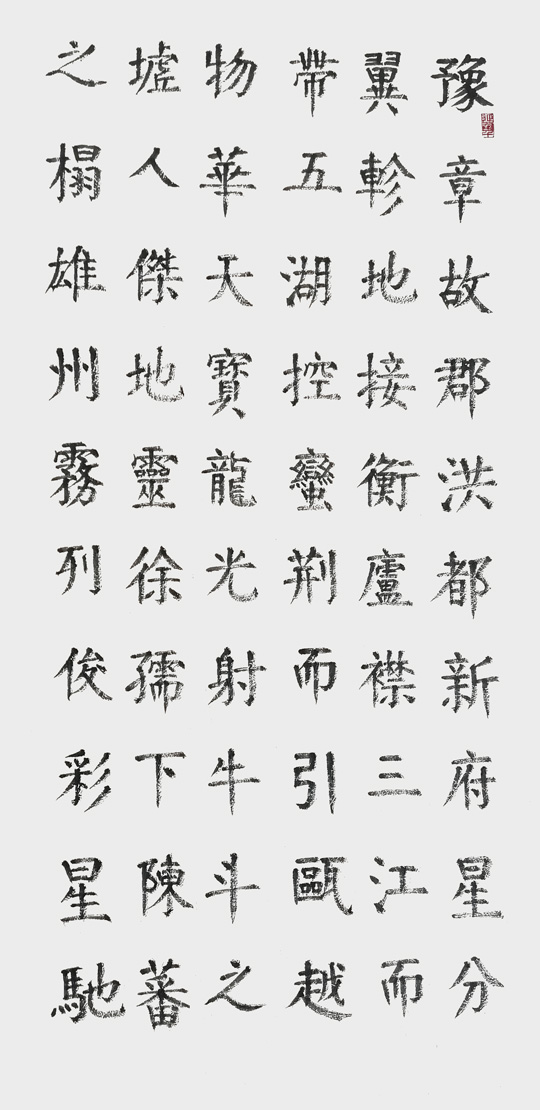 豫章故郡洪都新府星分
翼軫地接衡廬襟三江而
帶五湖控蠻荆而引甌越
物華天寶龍光射牛斗之
墟人傑地靈徐孺下陳蕃
之榻雄州霧列俊彩星馳